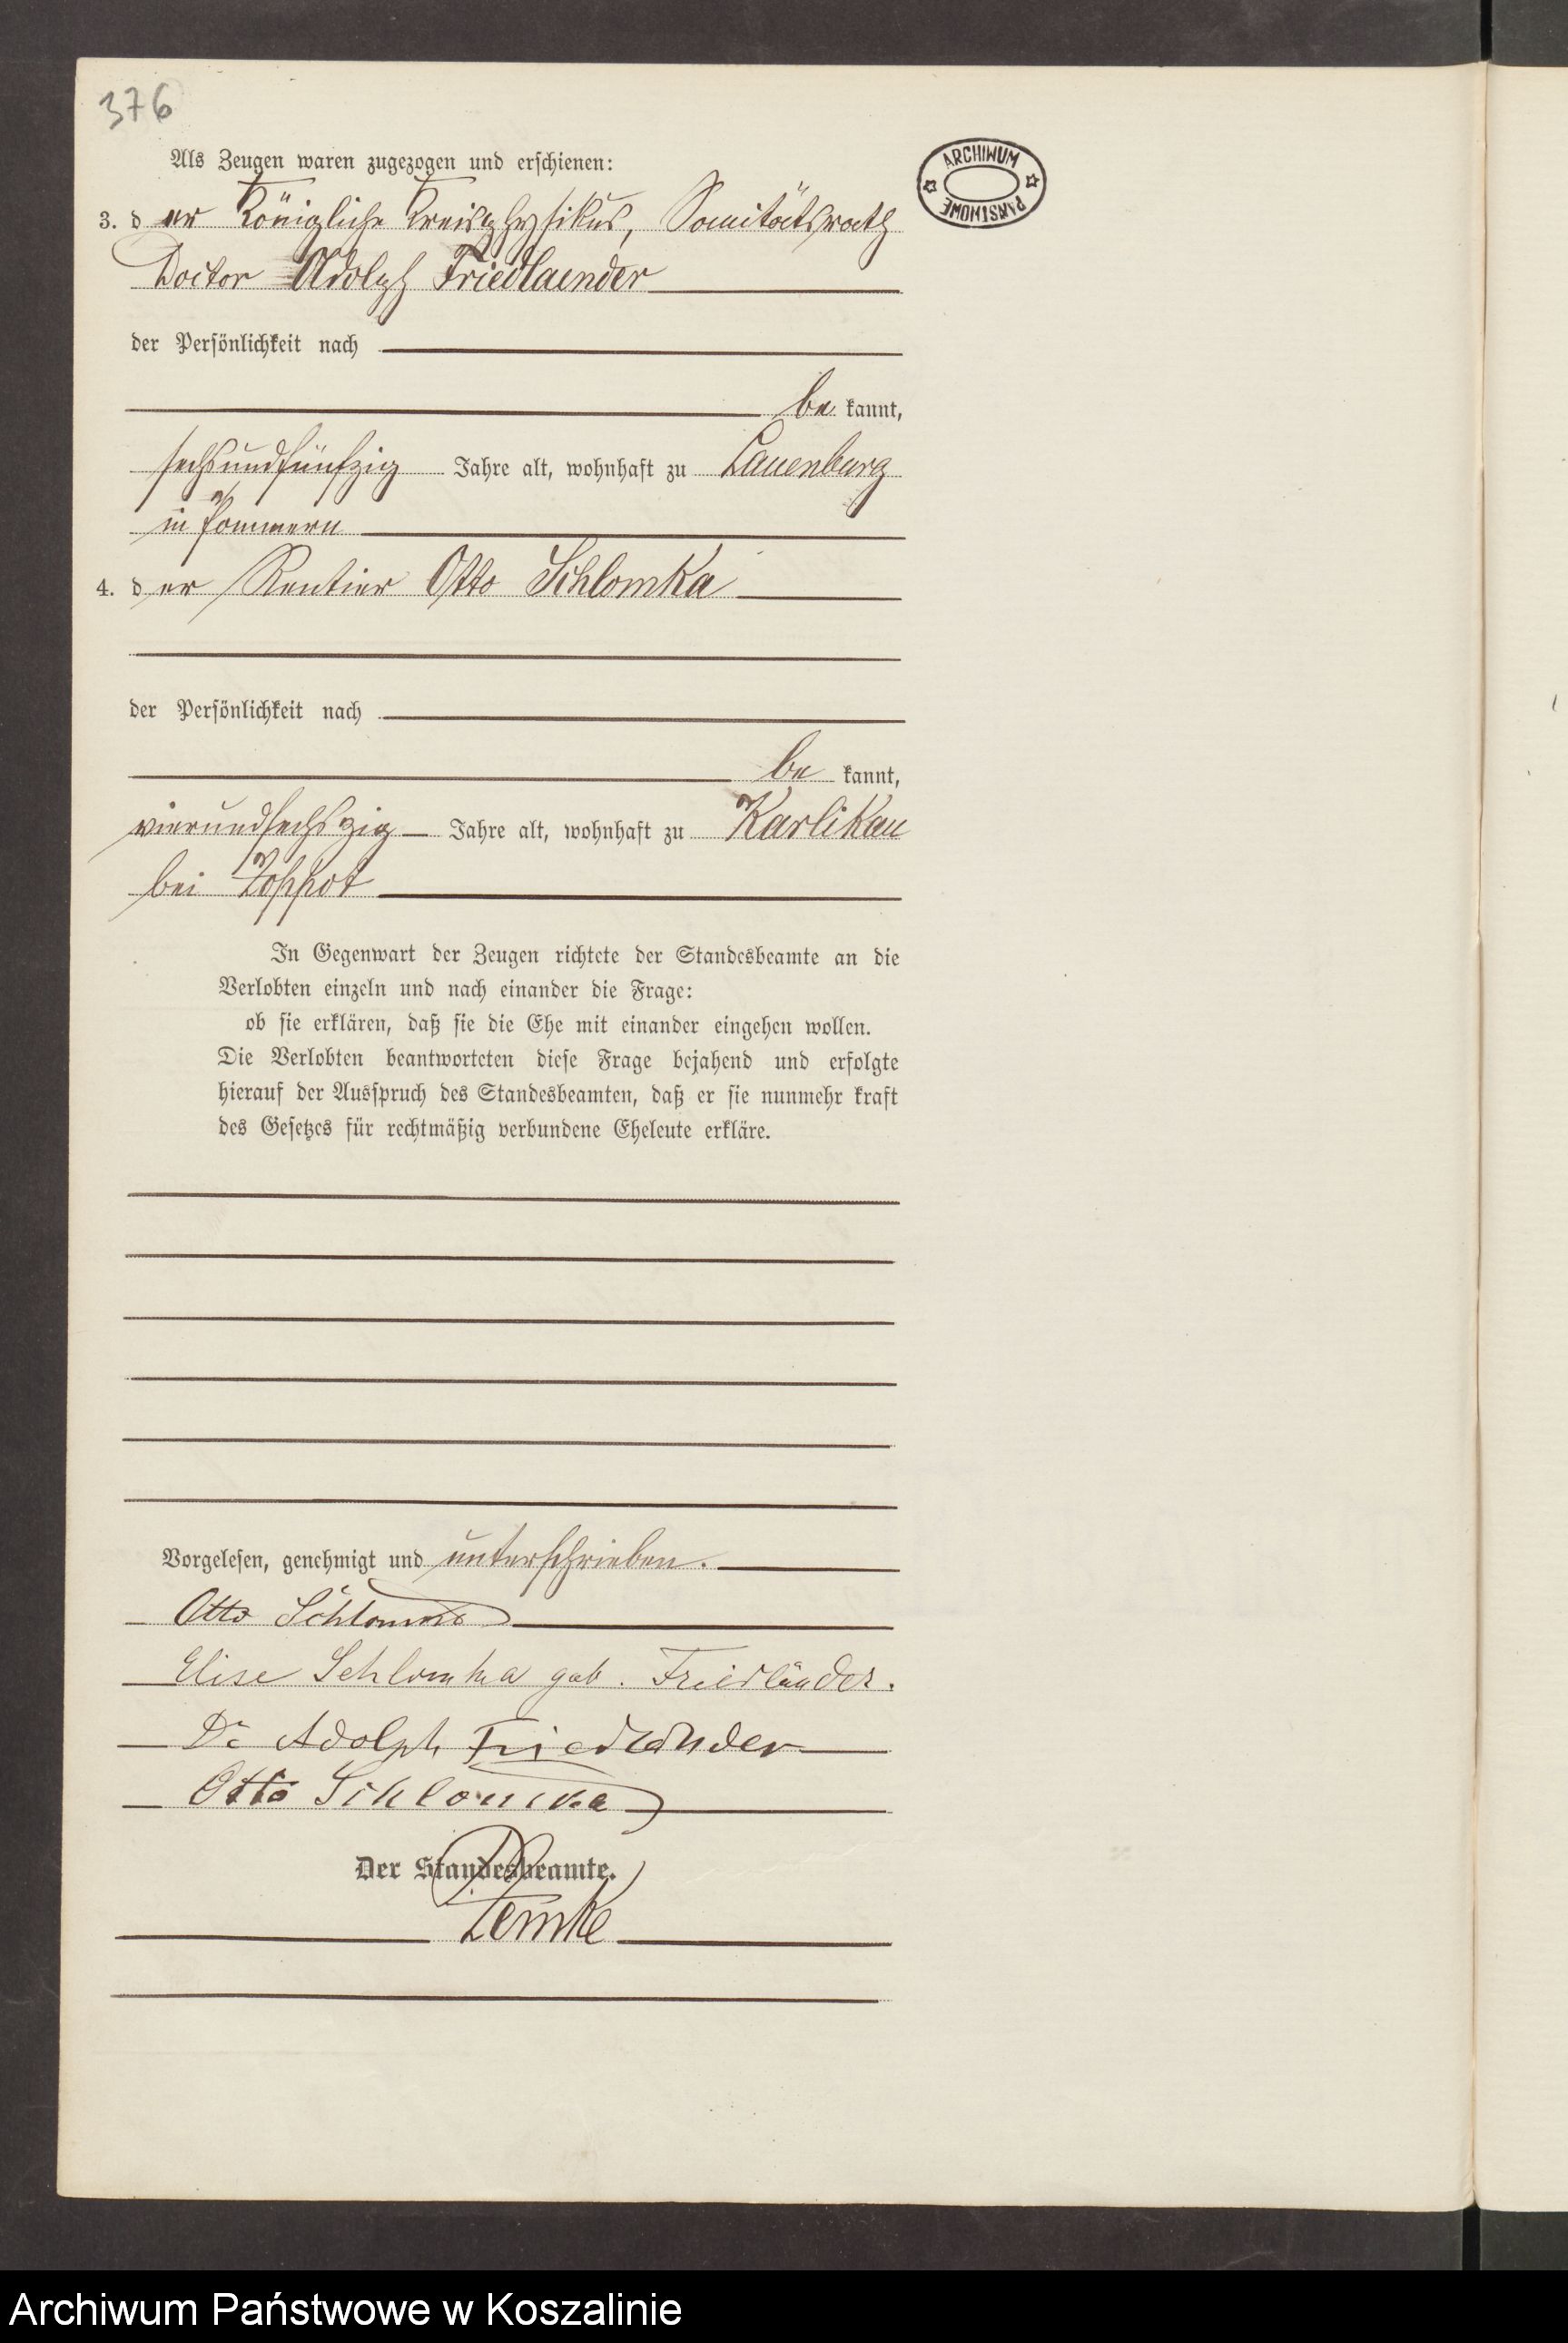 376
Als Zeugen waren zugezogen und erschienen:
ARCHIWUM PAŃSTWOWE
3. der Königliche Kreisphysikus, Sanitätsrath
Doctor Adolph Friedlaender
der Persönlichkeit nach
be kannt,
sechsundfünfzig Jahre alt, wohnhaft zu Lauenburg
in Pommern
4. der Rentier Otto Schlomka
der Persönlichkeit nach
be kannt,
vierundsechszig Jahre alt, wohnhaft zu Karlikau
bei Zoppot
In Gegenwart der Zeugen richtete der Standesbeamte an die
Verlobten einzeln und nach einander die Frage:
ob sie erklären, daß sie die Ehe mit einander eingehen wollen.
Die Verlobten beantworteten diese Frage bejahend und erfolgte
hierauf der Ausspruch des Standesbeamten, daß er sie nunmehr kraft
des Gesetzes für rechtmäßig verbundene Eheleute erkläre.
Vorgelesen, genehmigt und unterschrieben.
Otto Schlomka
Elise Schlomka geb. Friedländer.
Dr Adolph Friedländer
Otto Schlomka
Der Standesbeamte.
Zemke
Archiwum Państwowe w Koszalinie